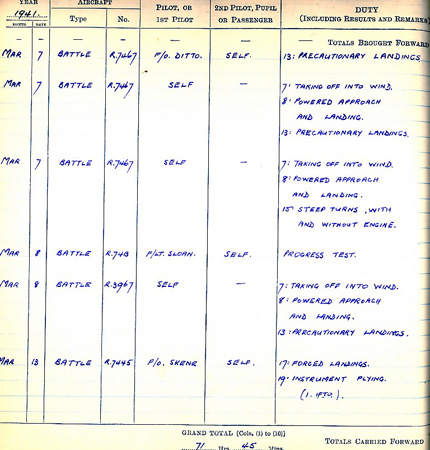 YEAR AIRCRAFT PILOT, OR 2ND PILOT, PUPIL DUTY
1941. Type No. 1ST PILOT OR PASSENGER (INCLUDING RESULTS AND REMARKS
MONTH DATE
— — — — — — TOTALS BROUGHT FORWARD
MAR 7 BATTLE R.7467 F/O. DITTO. SELF. 13: PRECAUTIONARY LANDINGS.
MAR 7 BATTLE R.7467 SELF — 7: TAKING OFF INTO WIND.
8: POWERED APPROACH
AND LANDING.
13: PRECAUTIONARY LANDINGS.
MAR 7 BATTLE R.7467 SELF — 7: TAKING OFF INTO WIND.
8: POWERED APPROACH
AND LANDING.
15 STEEP TURNS, WITH
AND WITHOUT ENGINE.
MAR 8 BATTLE F/LT. SLOAN. SELF. PROGRESS TEST.
MAR 8 BATTLE R.3967 SELF — 7: TAKING OFF INTO WIND.
8: POWERED APPROACH
AND LANDING.
13: PRECAUTIONARY LANDINGS.
MAR 13 BATTLE R.7445 F/O. SKENE SELF. 17: FORCED LANDINGS.
19: INSTRUMENT FLYING.
GRAND TOTAL [Cols. (1) to (10)]
71 Hrs. 45 Mins. TOTALS CARRIED FORWARD